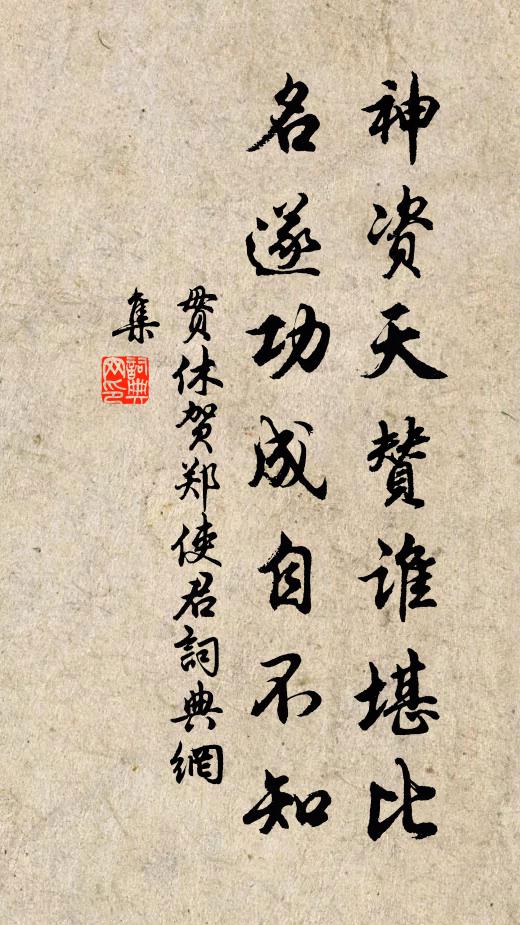 神资天赞谁堪比
名遂功成自不知
贯休贺郑使君詞典網
集
詞典
网印